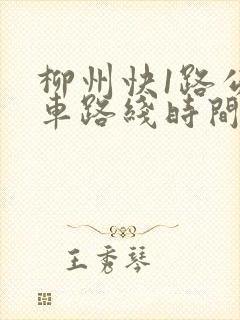 柳州快1路公
車路綫時間
王秀琴